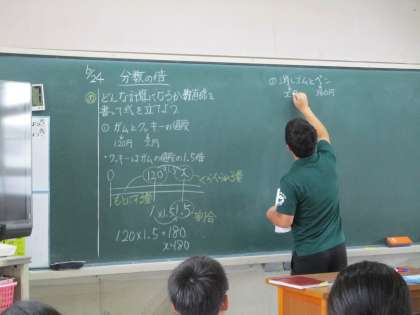 6/24 分数の倍
め どんな計算になるか数直線を
書いて式を立てよう
① ガムとクッキーの値段
120円
・クッキーはガムの値段の1.5倍
0 120 x
くらべる量
もとにする量
1 ×1.5 1.5 割合
120×1.5=180
x=180
② 消しゴムとペン